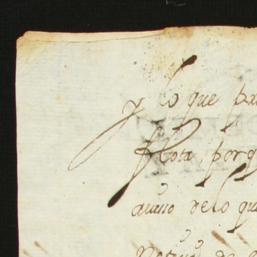 y lo que pa
flota, porq
auiso de lo qu